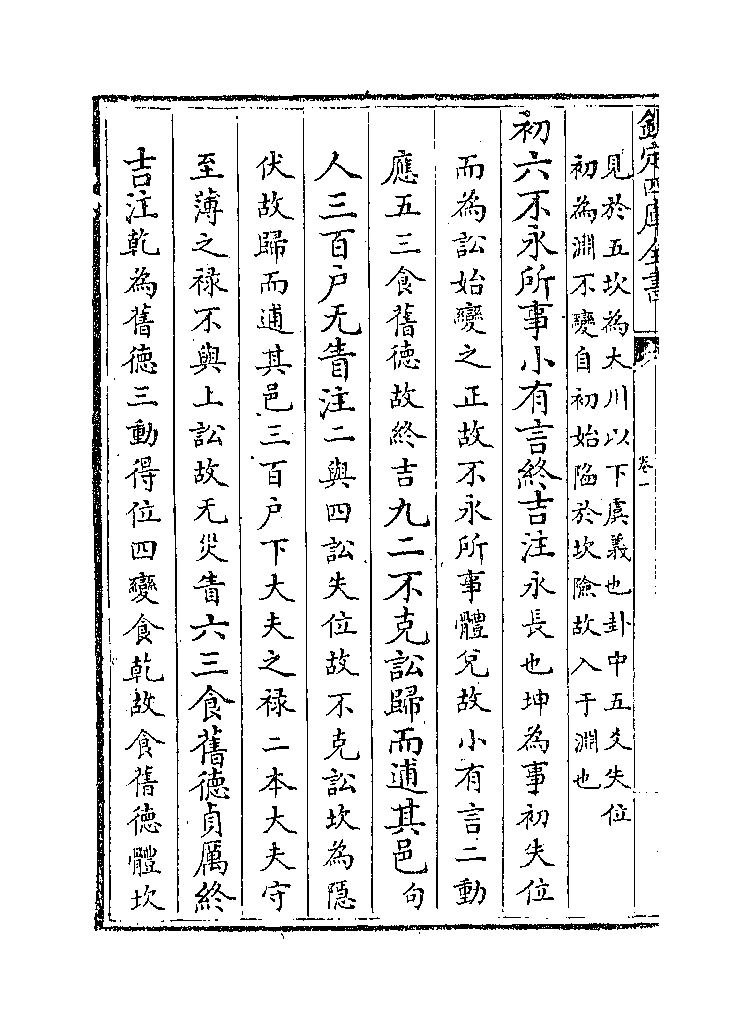 欽定四庫全書
卷一
見於五坎為大川以下虞義也卦中五爻失位
初為淵不變自初始陷於坎險故入于淵也
初六不永所事小有言終吉注永長也坤為事初失位
而為訟始變之正故不永所事體兌故小有言二動
應五三食舊徳故終吉九二不克訟歸而逋其邑句
人三百户无眚注二與四訟失位故不克訟坎為隱
伏故歸而逋其邑三百户下大夫之禄二本大夫守
至薄之禄不與上訟故无災眚六三食舊徳貞厲終
吉注乾為舊徳三動得位四變食乾故食舊徳體坎